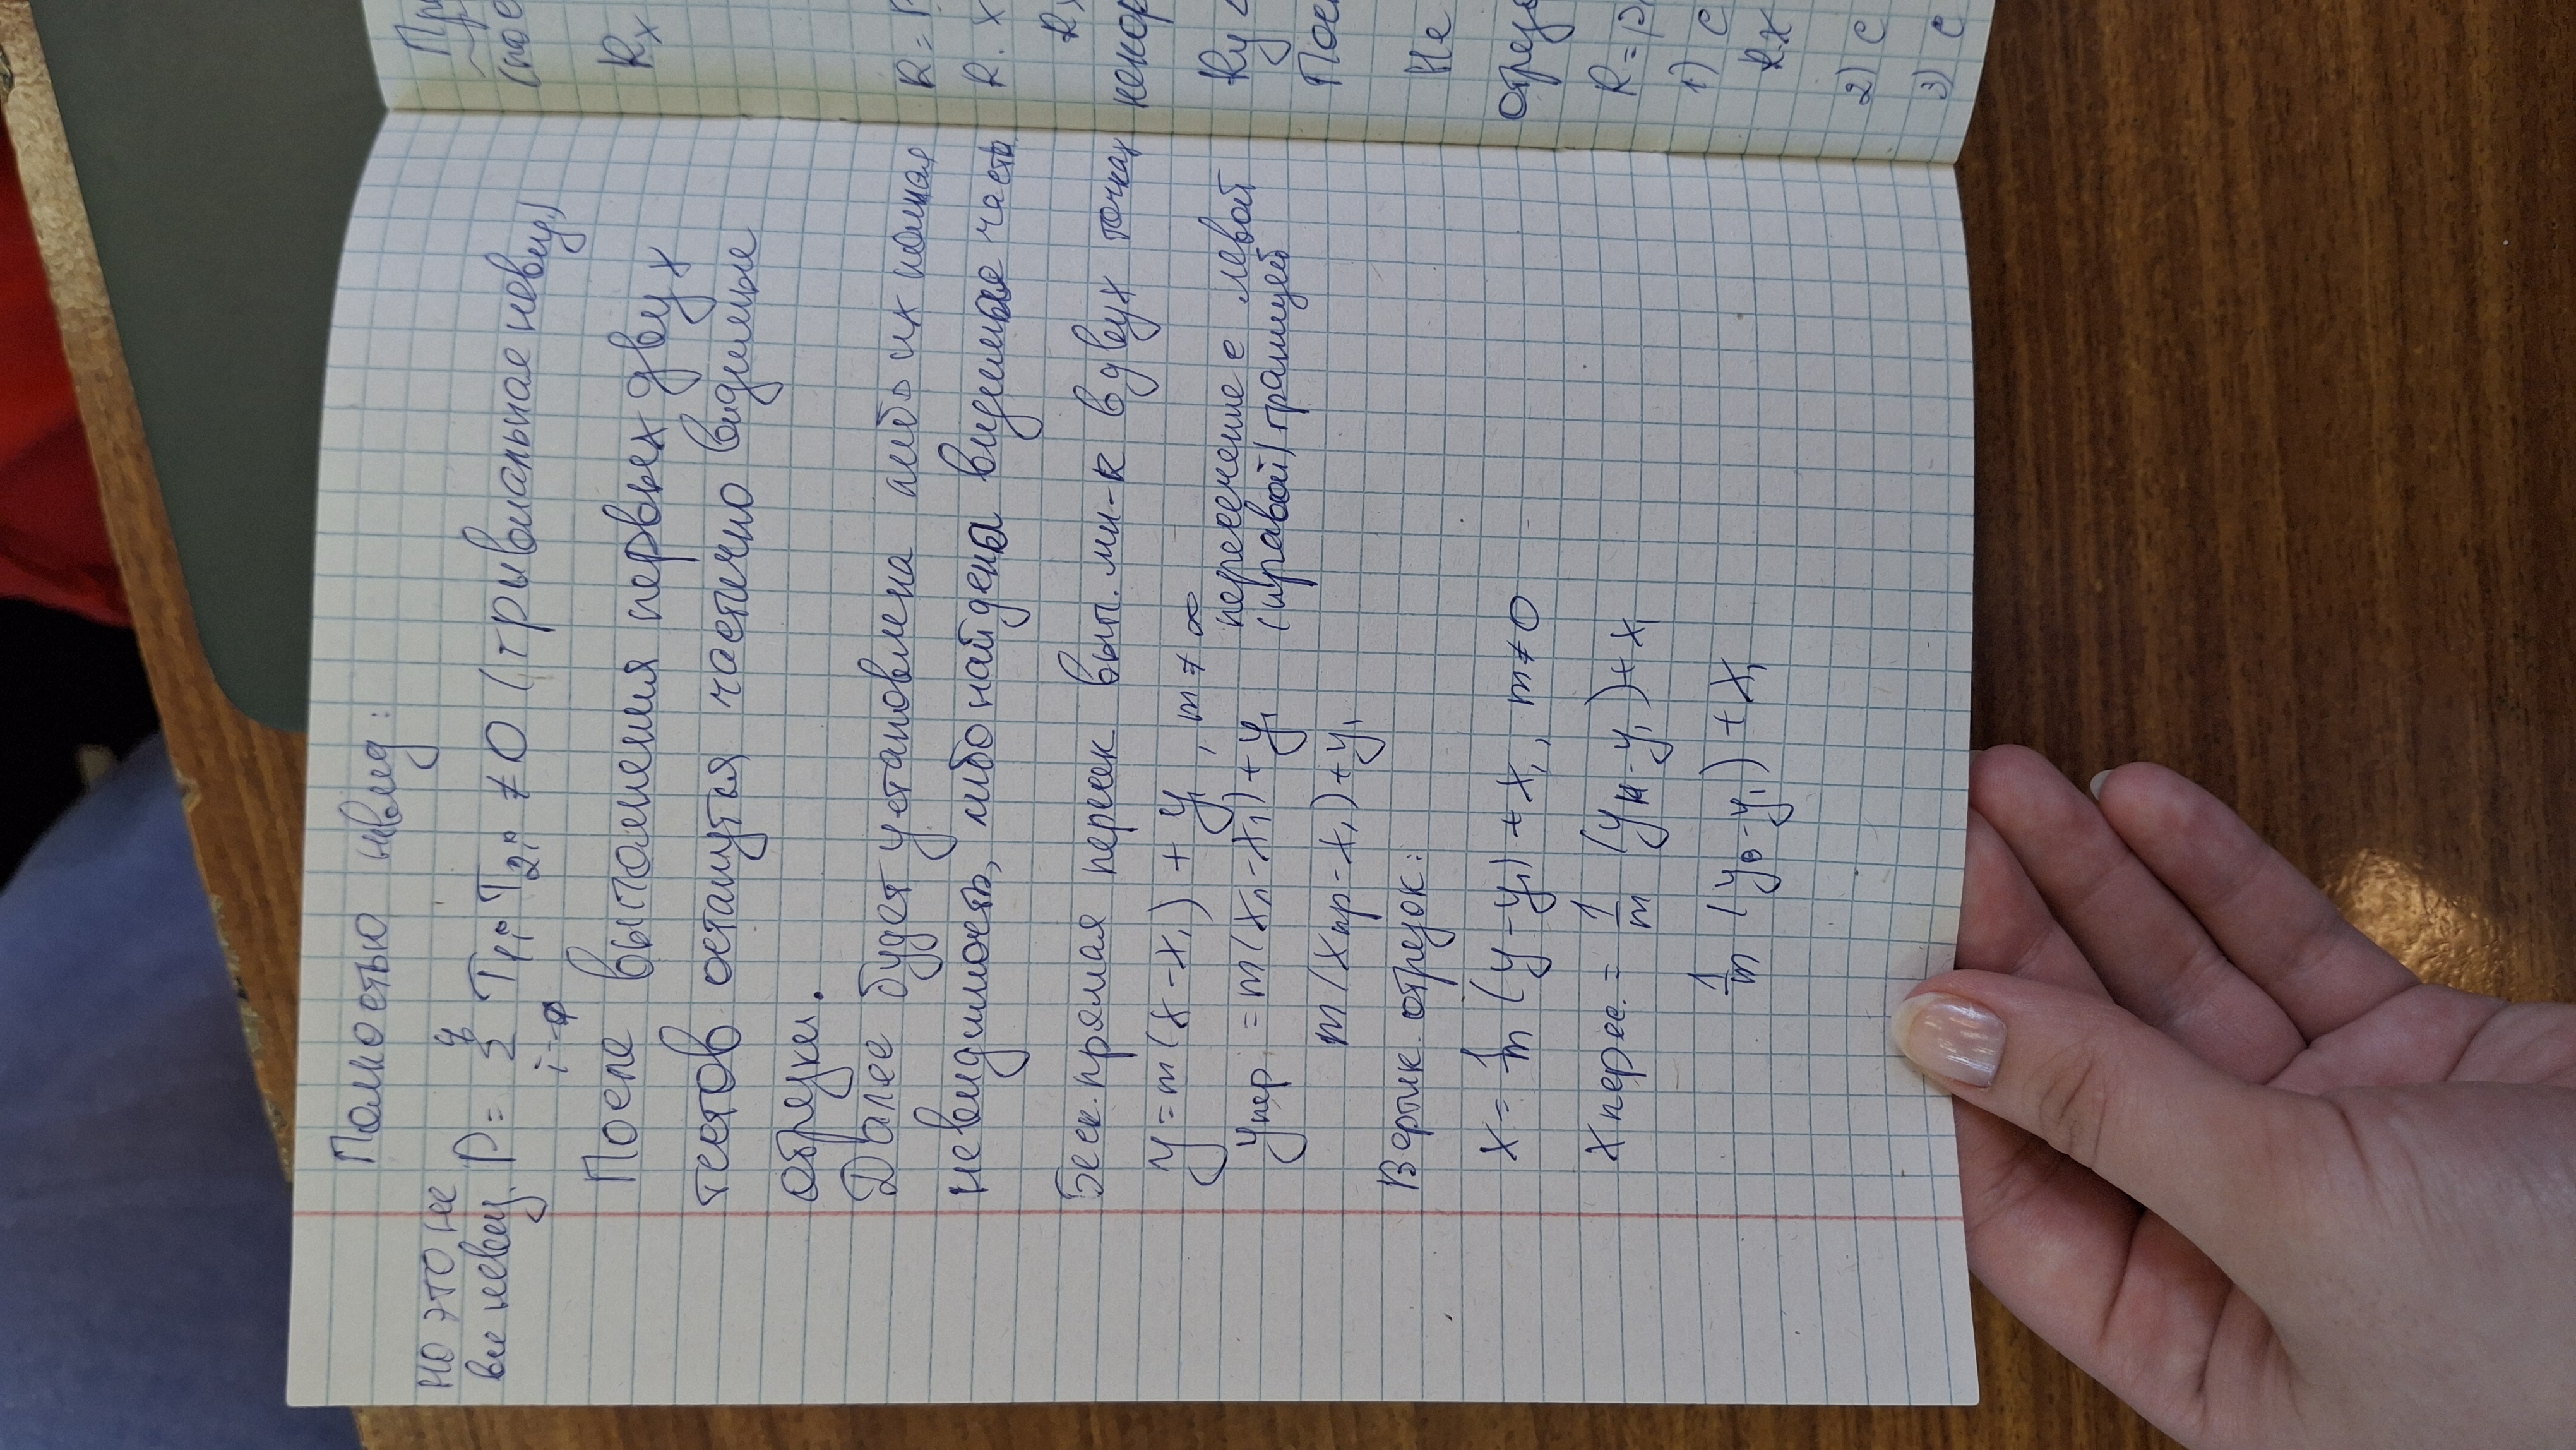 Полностью невид:
но это не
все невид.
P = 4 Σ i=1 T₁ᵢ T₂ᵢ ≠ 0 (тривиальная невид.)
После выполнения первых двух
тестов останутся частично видимые
отрезки.
Далее будет установлена либо их полная
невидимость, либо найдена видимая часть
Беск. прямая пересек вып. мн-к в двух точках
y = m(x - x₁) + y₁, m ≠ ∞
yпер = m(xл - x₁) + y₁ пересечение с левой
(правой) границей
m(xпр - x₁) + y₁
Вертик. отрезок:
x = 1/m (y - y₁) + x₁, m ≠ 0
xперес. = 1/m (yн - y₁) + x₁
1/m (yв - y₁) + x₁
Rx
R =
R. X
Ry <
Не
R = p
1) с
R.X
2) с
3) с